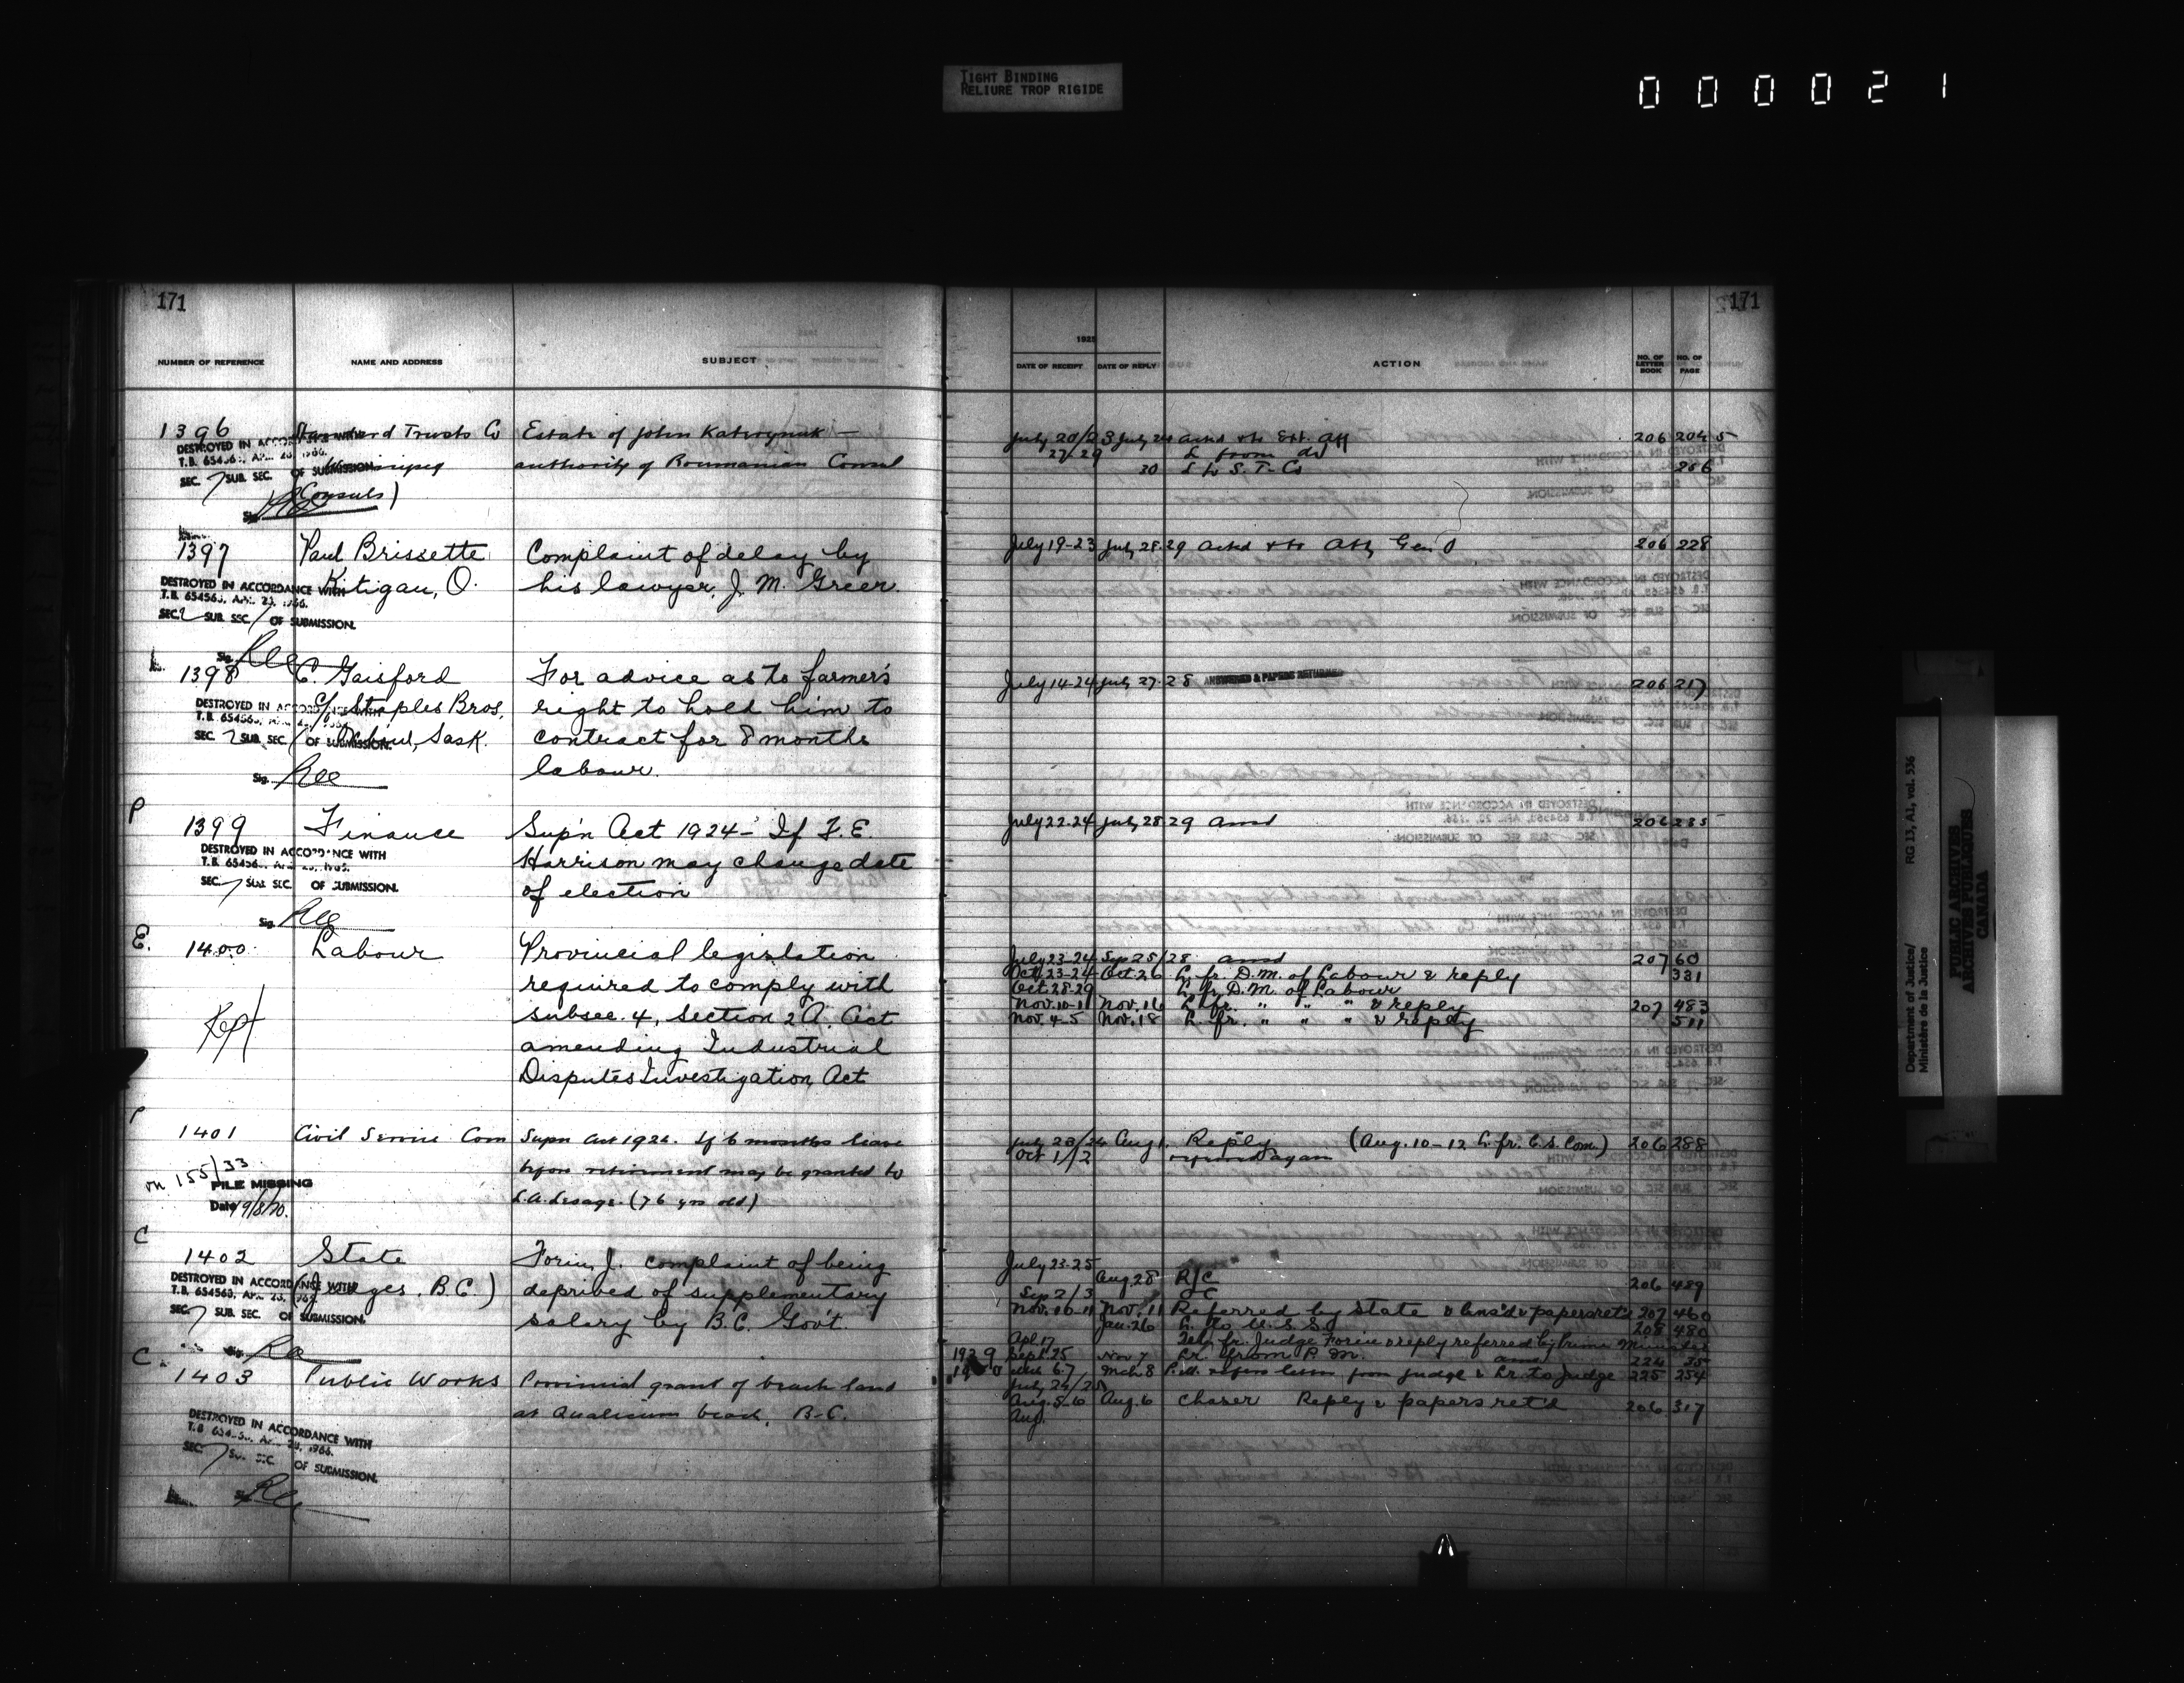 TIGHT BINDING
RELIURE TROP RIGIDE
0 0 0 0 2 1
171
NUMBER OF REFERENCE NAME AND ADDRESS SUBJECT
1396 Standard Trusts Co Estate of John
DESTROYED IN ACCORDANCE WITH
T.B. 654563, APR. 23, 1966.
Winnipeg authority of Roumanian Consul
SEC. 7 SUB. SEC. OF SUBMISSION.
(Consuls)
Sig.
1397 Paul Brissette Complaint of delay by
Kitigan, O. his lawyer, J. M. Greer.
DESTROYED IN ACCORDANCE WITH
T.B. 654563, APR. 23, 1966.
SEC. 2 SUB. SEC. 1 OF SUBMISSION.
Sig.
1398 C. Gaisford For advice as to farmer's
c/o Staples Bros. right to hold him to
DESTROYED IN ACCORDANCE WITH
T.B. 654563, APR. 23, 1966.
Sask. contract for 8 months
SEC. 2 SUB. SEC. 1 OF SUBMISSION.
labour.
Sig.
P
1399 Finance Sup'n Act 1924 - If F. E.
DESTROYED IN ACCORDANCE WITH
T.B. 654563, APR. 23, 1966.
Harrison may change date
SEC. 7 SUB. SEC. OF SUBMISSION.
of election
Sig.
E.
1400 Labour Provincial legislation
required to comply with
Kept subsec. 4, Section 2A. Act
amending Industrial
Disputes Investigation Act
P
1401 Civil Service Com Supn Act 1924. If 6 months leave
on 155/33 before retirement may be granted to
FILE MISSING
L.A. Lesage. (76 yrs old)
Date 19/8/70.
C
1402 State Forin, J. complaint of being
(Judges. B.C.) deprived of supplementary
DESTROYED IN ACCORDANCE WITH
T.B. 654563, APR. 23, 1966.
SEC. 7 SUB. SEC. OF SUBMISSION.
salary by B.C. Gov't.
Sig.
C
1403 Public Works Provincial grant of beach land
at Qualicum beach, B.C.
DESTROYED IN ACCORDANCE WITH
T.B. 654563, APR. 23, 1966.
SEC. 7 SUB. SEC. OF SUBMISSION.
Sig.
171
1925
DATE OF RECEIPT DATE OF REPLY ACTION NO. OF LETTER BOOK NO. OF PAGE
July 20/23 July 24 Ackd & to Ext. Aff 206 204 5
27/29 L from do
30 L to S. T. Co 256
July 19-23 July 28-29 Ackd & to Atty Gen O 206 228
July 14-24 July 27-28 ANSWERED & PAPERS RETURNED 206 217
July 22-24 July 28-29 Ansd 206 235
July 23-24 Sep 25/28 ansd 207 60
Oct. 23-24 Oct. 26 L. fr. D.M. of Labour & reply 331
Oct. 28-29 L. fr. D.M. of Labour
Nov. 10-11 Nov. 16 L. fr. " " " & reply 207 483
Nov. 4-5 Nov. 18 L. fr. " " " & reply 511
July 23/24 Aug 1. Reply (Aug. 10-12 L. fr. C.S. Com.) 206 288
Oct 1/2 again
July 23-25
Aug. 28 R/C 206 489
Sep 2/3 OC
Nov. 10-11 Nov. 11 Referred by State & ans'd & papers ret'd 207 460
Jan. 26 L. to U.S.S. 208 480
Apl. 17 Tel. fr. Judge Forin & reply referred by Prime Minister
1929 Sept. 25 Nov 7 Lr. from P.M. ansd 224 35
Mch 6-7 Mch 8 P.M. refers letter from Judge & Lr. to Judge 225 254
July 24/25
Aug. 5-6 Aug. 6 Chaser Reply & papers ret'd 206 317
Aug.
Department of Justice/ RG 13, A1, vol. 536
Ministère de la Justice
PUBLIC ARCHIVES
ARCHIVES PUBLIQUES
CANADA